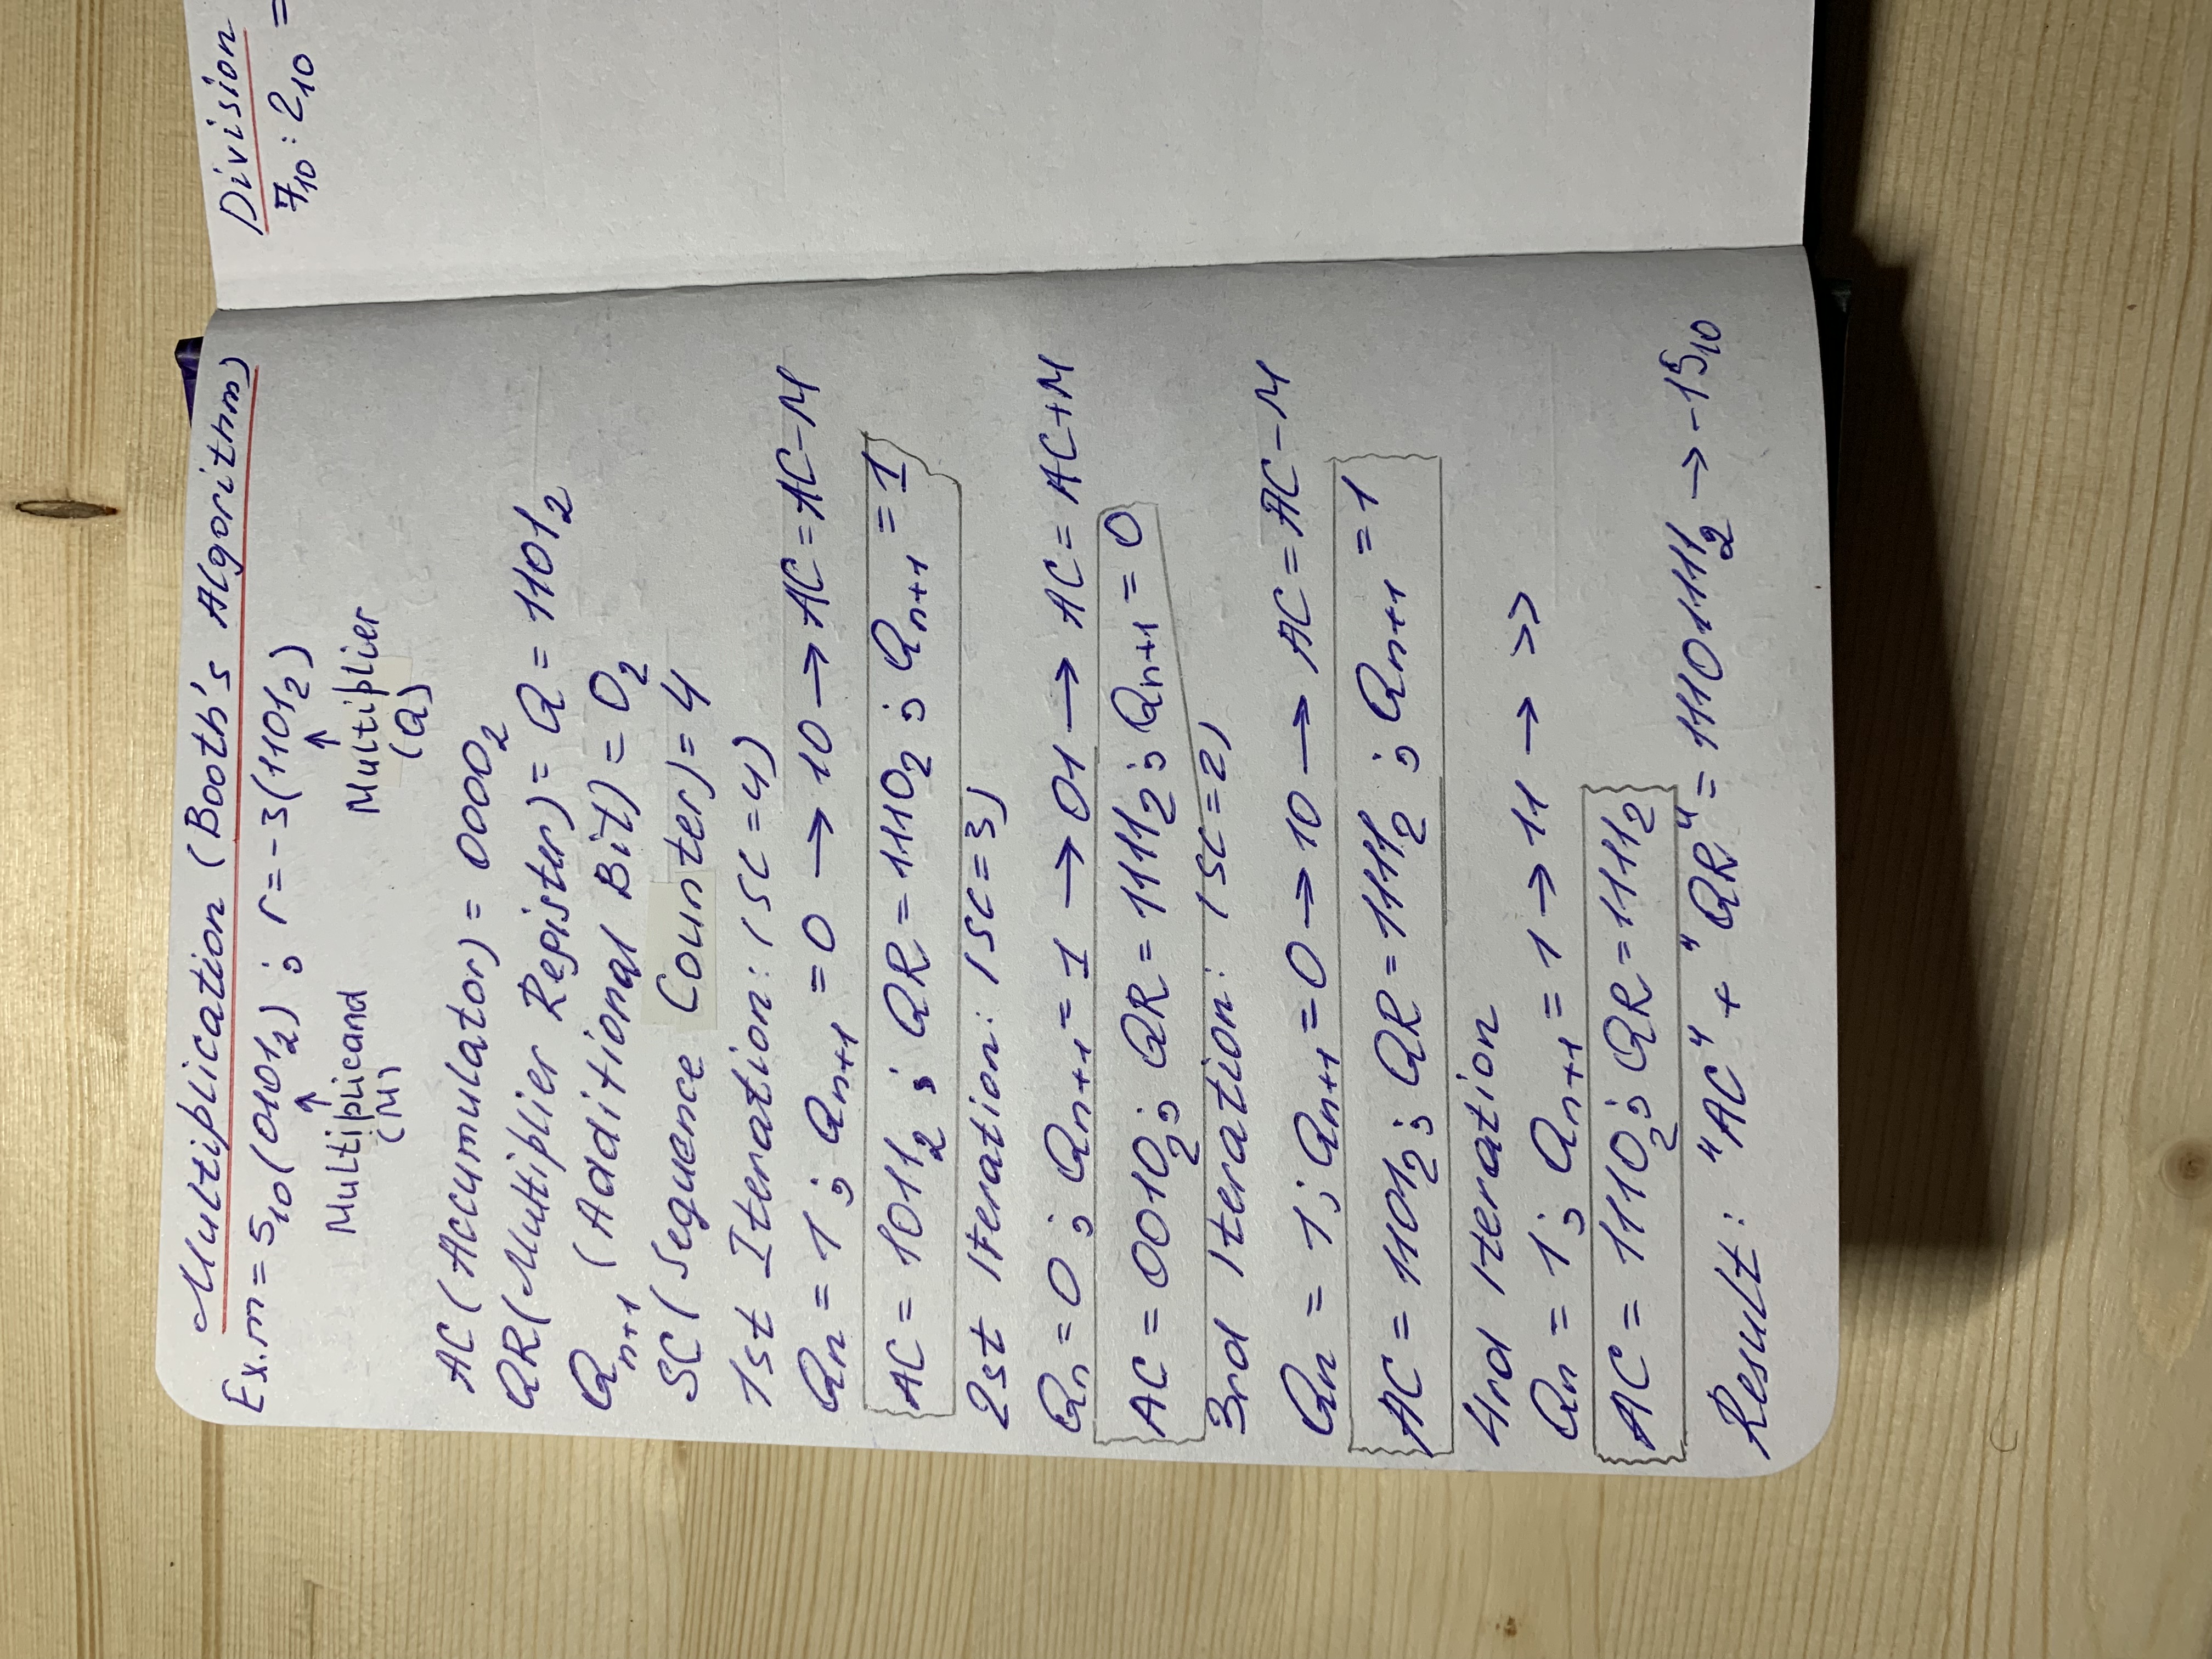 Multiplication (Booth's Algorithm)
Ex. m = 5₁₀ (0101₂) ; r = -3 (1101₂)
↑ ↑
Multiplicand Multiplier
(M) (Q)
AC (Accumulator) = 0000₂
QR (Multiplier Register) = Q = 1101₂
Qₙ₊₁ (Additional Bit) = 0₂
SC (Sequence Counter) = 4
1st Iteration: (SC = 4)
Qₙ = 1 ; Qₙ₊₁ = 0 → 10 → AC = AC - M
AC = 1011₂ ; QR = 1110₂ ; Qₙ₊₁ = 1
2st Iteration: (SC = 3)
Qₙ = 0 ; Qₙ₊₁ = 1 → 01 → AC = AC + M
AC = 0010₂ ; QR = 1111₂ ; Qₙ₊₁ = 0
3rd Iteration: (SC = 2)
Qₙ = 1 ; Qₙ₊₁ = 0 → 10 → AC = AC - M
AC = 1101₂ ; QR = 1111₂ ; Qₙ₊₁ = 1
4rd Iteration
Qₙ = 1 ; Qₙ₊₁ = 1 → 11 → >>
AC = 1110₂ ; QR = 1111₂
Result: "AC" + "QR" = 11101111₂ → -15₁₀
Division
7₁₀ : 2₁₀ =